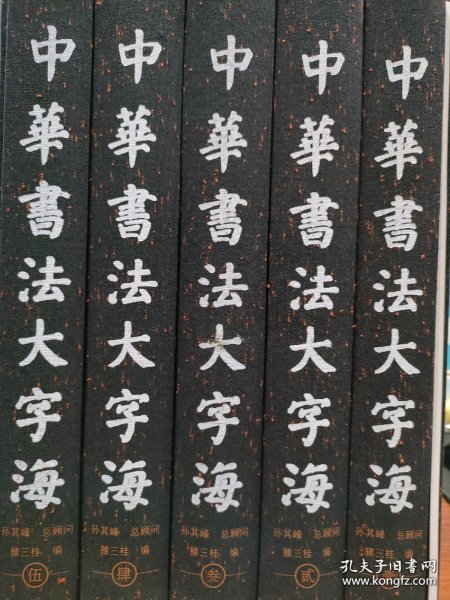 中華書法大字海
孙其峰 总顾问
雒三桂 编
伍
中華書法大字海
孙其峰 总顾问
雒三桂 编
肆
中華書法大字海
孙其峰 总顾问
雒三桂 编
叁
中華書法大字海
孙其峰 总顾问
雒三桂 编
贰
中華書法大字海
孙其峰 总顾问
雒三桂 编
孔夫子旧书网